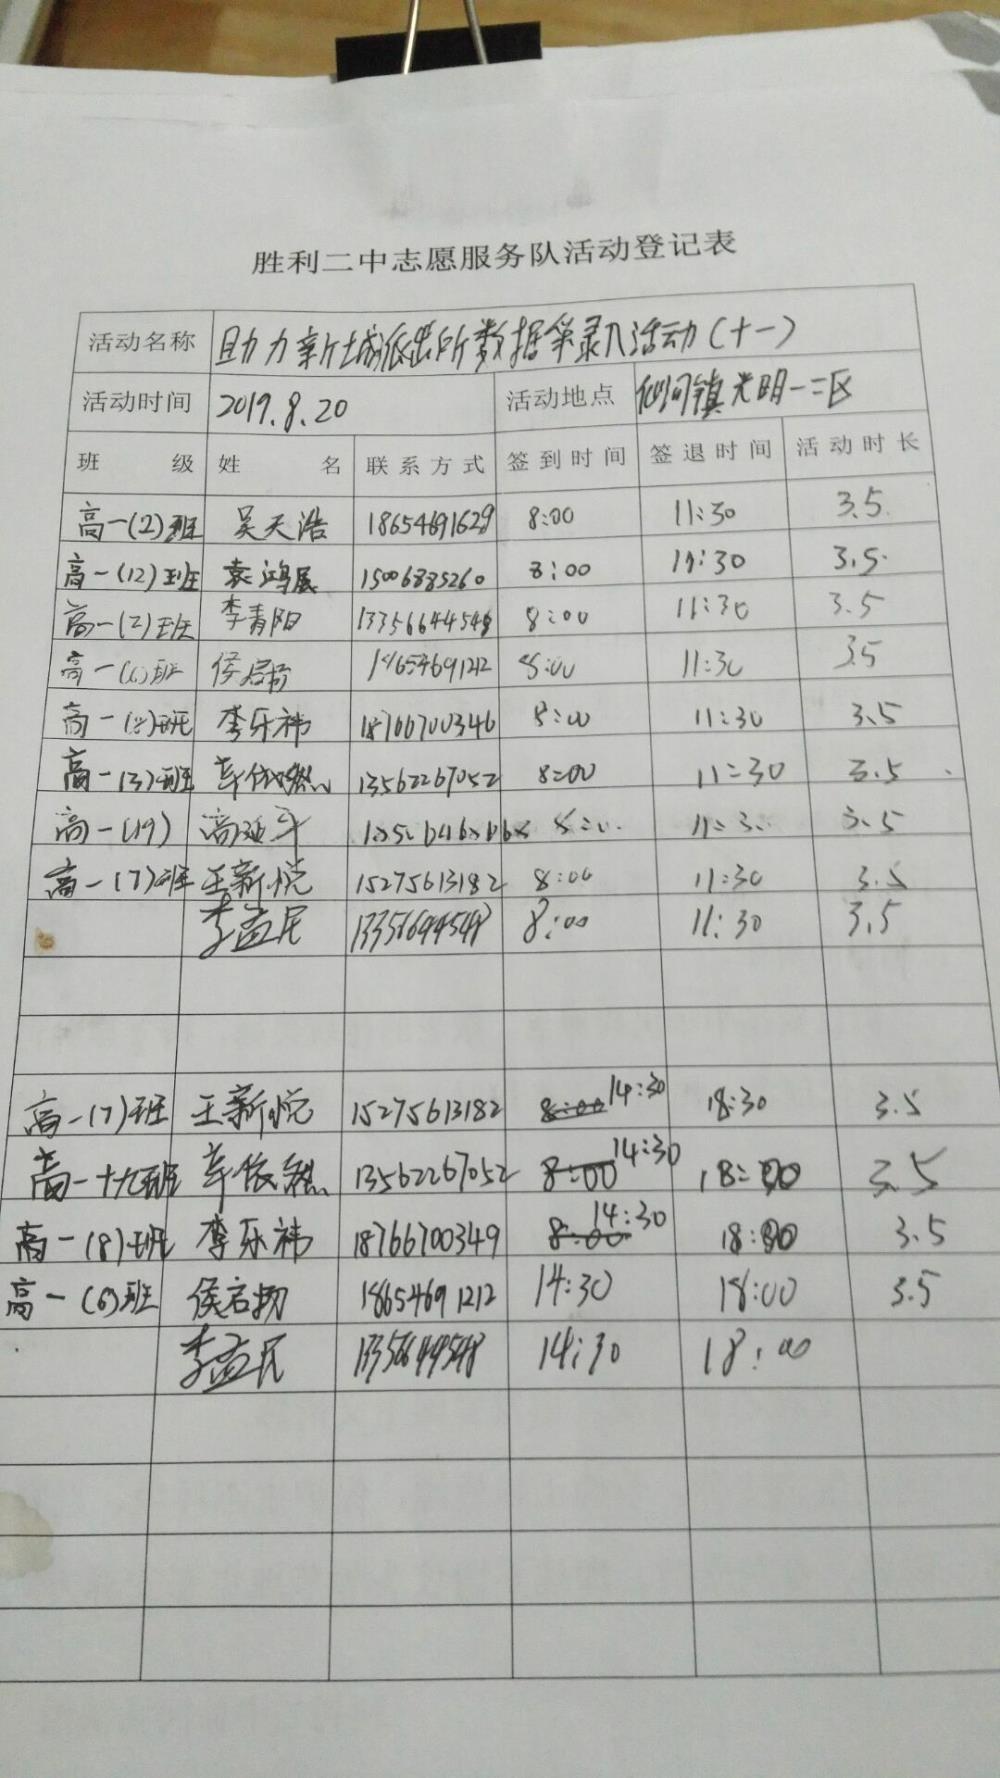 胜利二中志愿服务队活动登记表
活动名称 助力新城派出所数据录入活动(十一)
活动时间 2019.8.20 活动地点 仙河镇光明一二区
班级 姓名 联系方式 签到时间 签退时间 活动时长
高一(2)班 吴天浩 18654691629 8:00 11:30 3.5
高一(12)班 袁鸿展 15006885260 8:00 11:30 3.5
高一(2)班 李青阳 13356644548 8:00 11:30 3.5
高一(6)班 侯启扬 18654691212 8:00 11:30 3.5
高一(8)班 李乐祎 18766700346 8:00 11:30 3.5
高一(3)班 车依繎 13562267052 8:00 11:30 3.5
高一(19) 高延 11:30 3.5
高一(7)班 王新悦 15275613182 8:00 11:30 3.5
李益民 13356644548 8:00 11:30 3.5
高一(7)班 王新悦 15275613182 8:00 14:30 18:30 3.5
高一十九班 车依繎 13562267052 8:00 14:30 18:00 3.5
高一(8)班 李乐祎 18766700349 8:00 14:30 18:00 3.5
高一(6)班 侯启扬 18654691212 14:30 18:00 3.5
李益民 13356644548 14:30 18:00